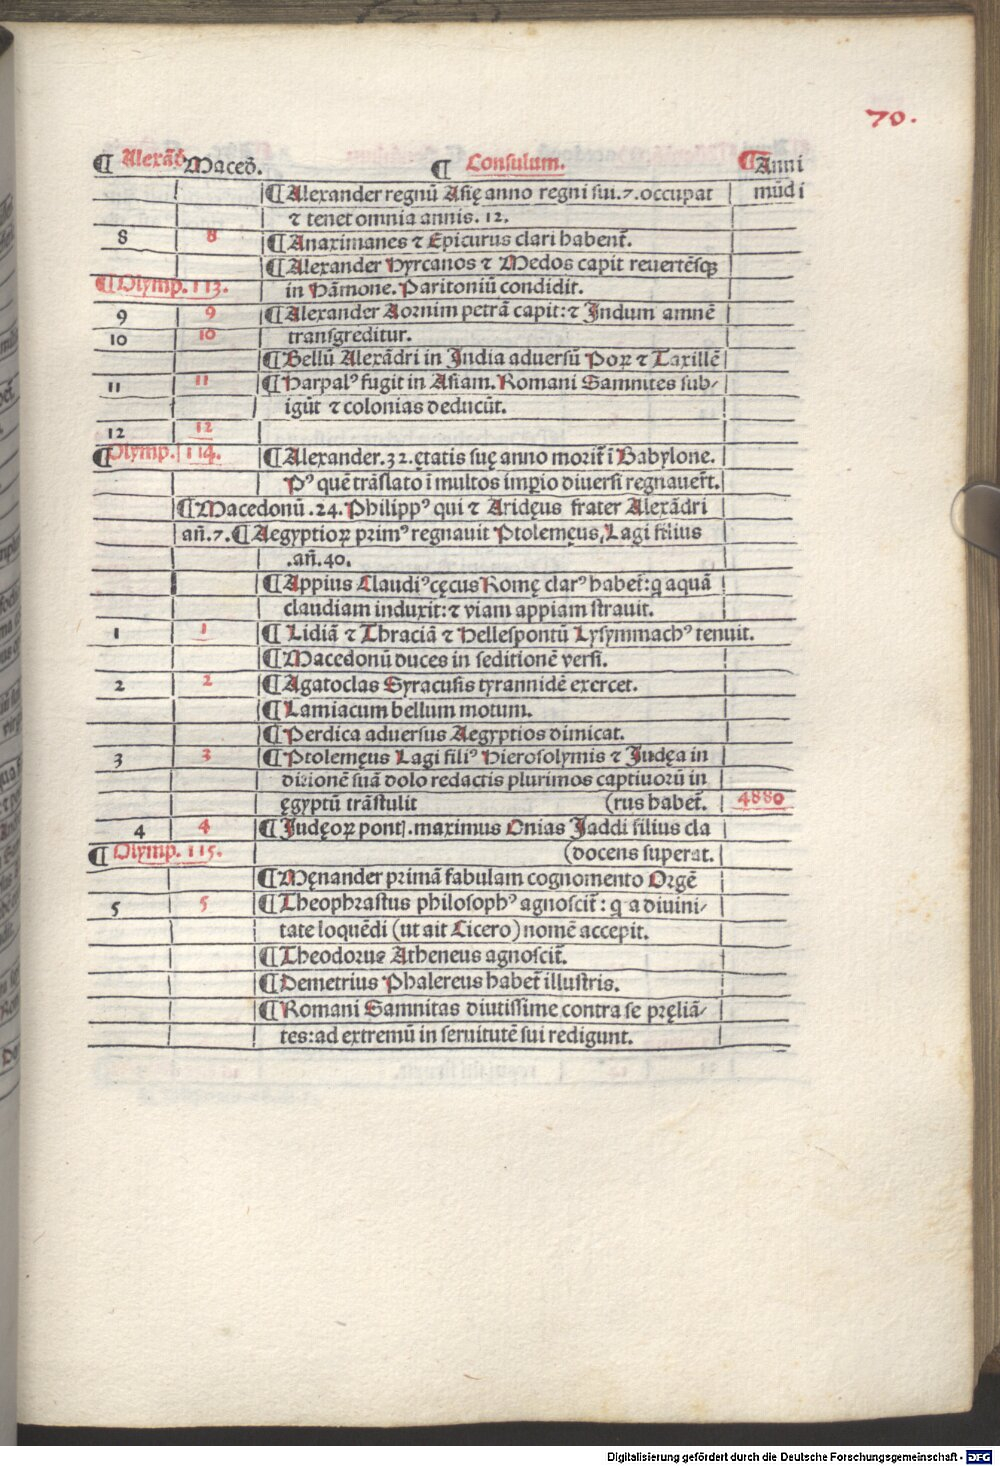 70.
¶ Alexãd̃ Maced̃. ¶ Consulum. ¶ Anni
¶ Alexander regnũ Asię anno regni sui.7.occupat mũdi
⁊ tenet omnia annis. 12.
8 8 ¶ Anaximanes ⁊ Epicurus clari habent̃.
¶ Alexander Hyrcanos ⁊ Medos capit reuertẽsqꝫ
¶ Olymp. 113. in Hãmone. Paritoniũ condidit.
9 9 ¶ Alexander Aornim petrã capit:⁊ Indum amnẽ
10 10 transgreditur.
¶ Bellũ Alexãdri in India aduersũ Poꝝ ⁊ Taxillẽ
11 11 ¶ Harpalꝰ fugit in Asiam. Romani Samnites sub/
igũt ⁊ colonias deducũt.
12 12
¶ Olymp. 114. ¶ Alexander.32.ętatis suę anno morit̃ ĩ Babylone.
Pꝰ quẽ trãslato ĩ multos imꝑio diuersi regnauer̃t.
¶ Macedonũ .24. Philippꝰ qui ⁊ Aridęus frater Alexãdri
añ.7. ¶ Aegyptioꝝ primꝰ regnauit Ptolemęus, Lagi filius
.añ.40.
¶ Appius Claudiꝰ cęcus Romę clarꝰ habet̃:q aquã
claudiam induxit:⁊ viam appiam strauit.
1 1 ¶ Lidiã ⁊ Thraciã ⁊ Hellespontũ Lysymmachꝰ tenuit.
¶ Macedonũ duces in seditionẽ versi.
2 2 ¶ Agatoclas Syracusis tyrannidẽ exercet.
¶ Lamiacum bellum motum.
¶ Perdica aduersus Aegyptios dimicat.
3 3 ¶ Ptolemęus Lagi filiꝰ Hierosolymis ⁊ Judęa in
ditionẽ suã dolo redactis plurimos captiuorũ in
ęgyptũ trãstulit (rus habet̃. 4880
4 4 ¶ Judęoꝝ pont̃.maximus Onias Jaddi filius cla
¶ Olymp. 115. (docens superat.
¶ Męnander primã fabulam cognomento Orgẽ
5 5 ¶ Theophrastus philosophꝰ agnoscit̃: q a diuini/
tate loquẽdi (ut ait Cicero) nomẽ accepit.
¶ Theodorus Atheneus agnoscit̃.
¶ Demetrius Phalereus habet̃ illustris.
¶ Romani Samnitas diutissime contra se pręliã/
tes:ad extremũ in seruitutẽ sui redigunt.
Digitalisierung gefördert durch die Deutsche Forschungsgemeinschaft - DFG